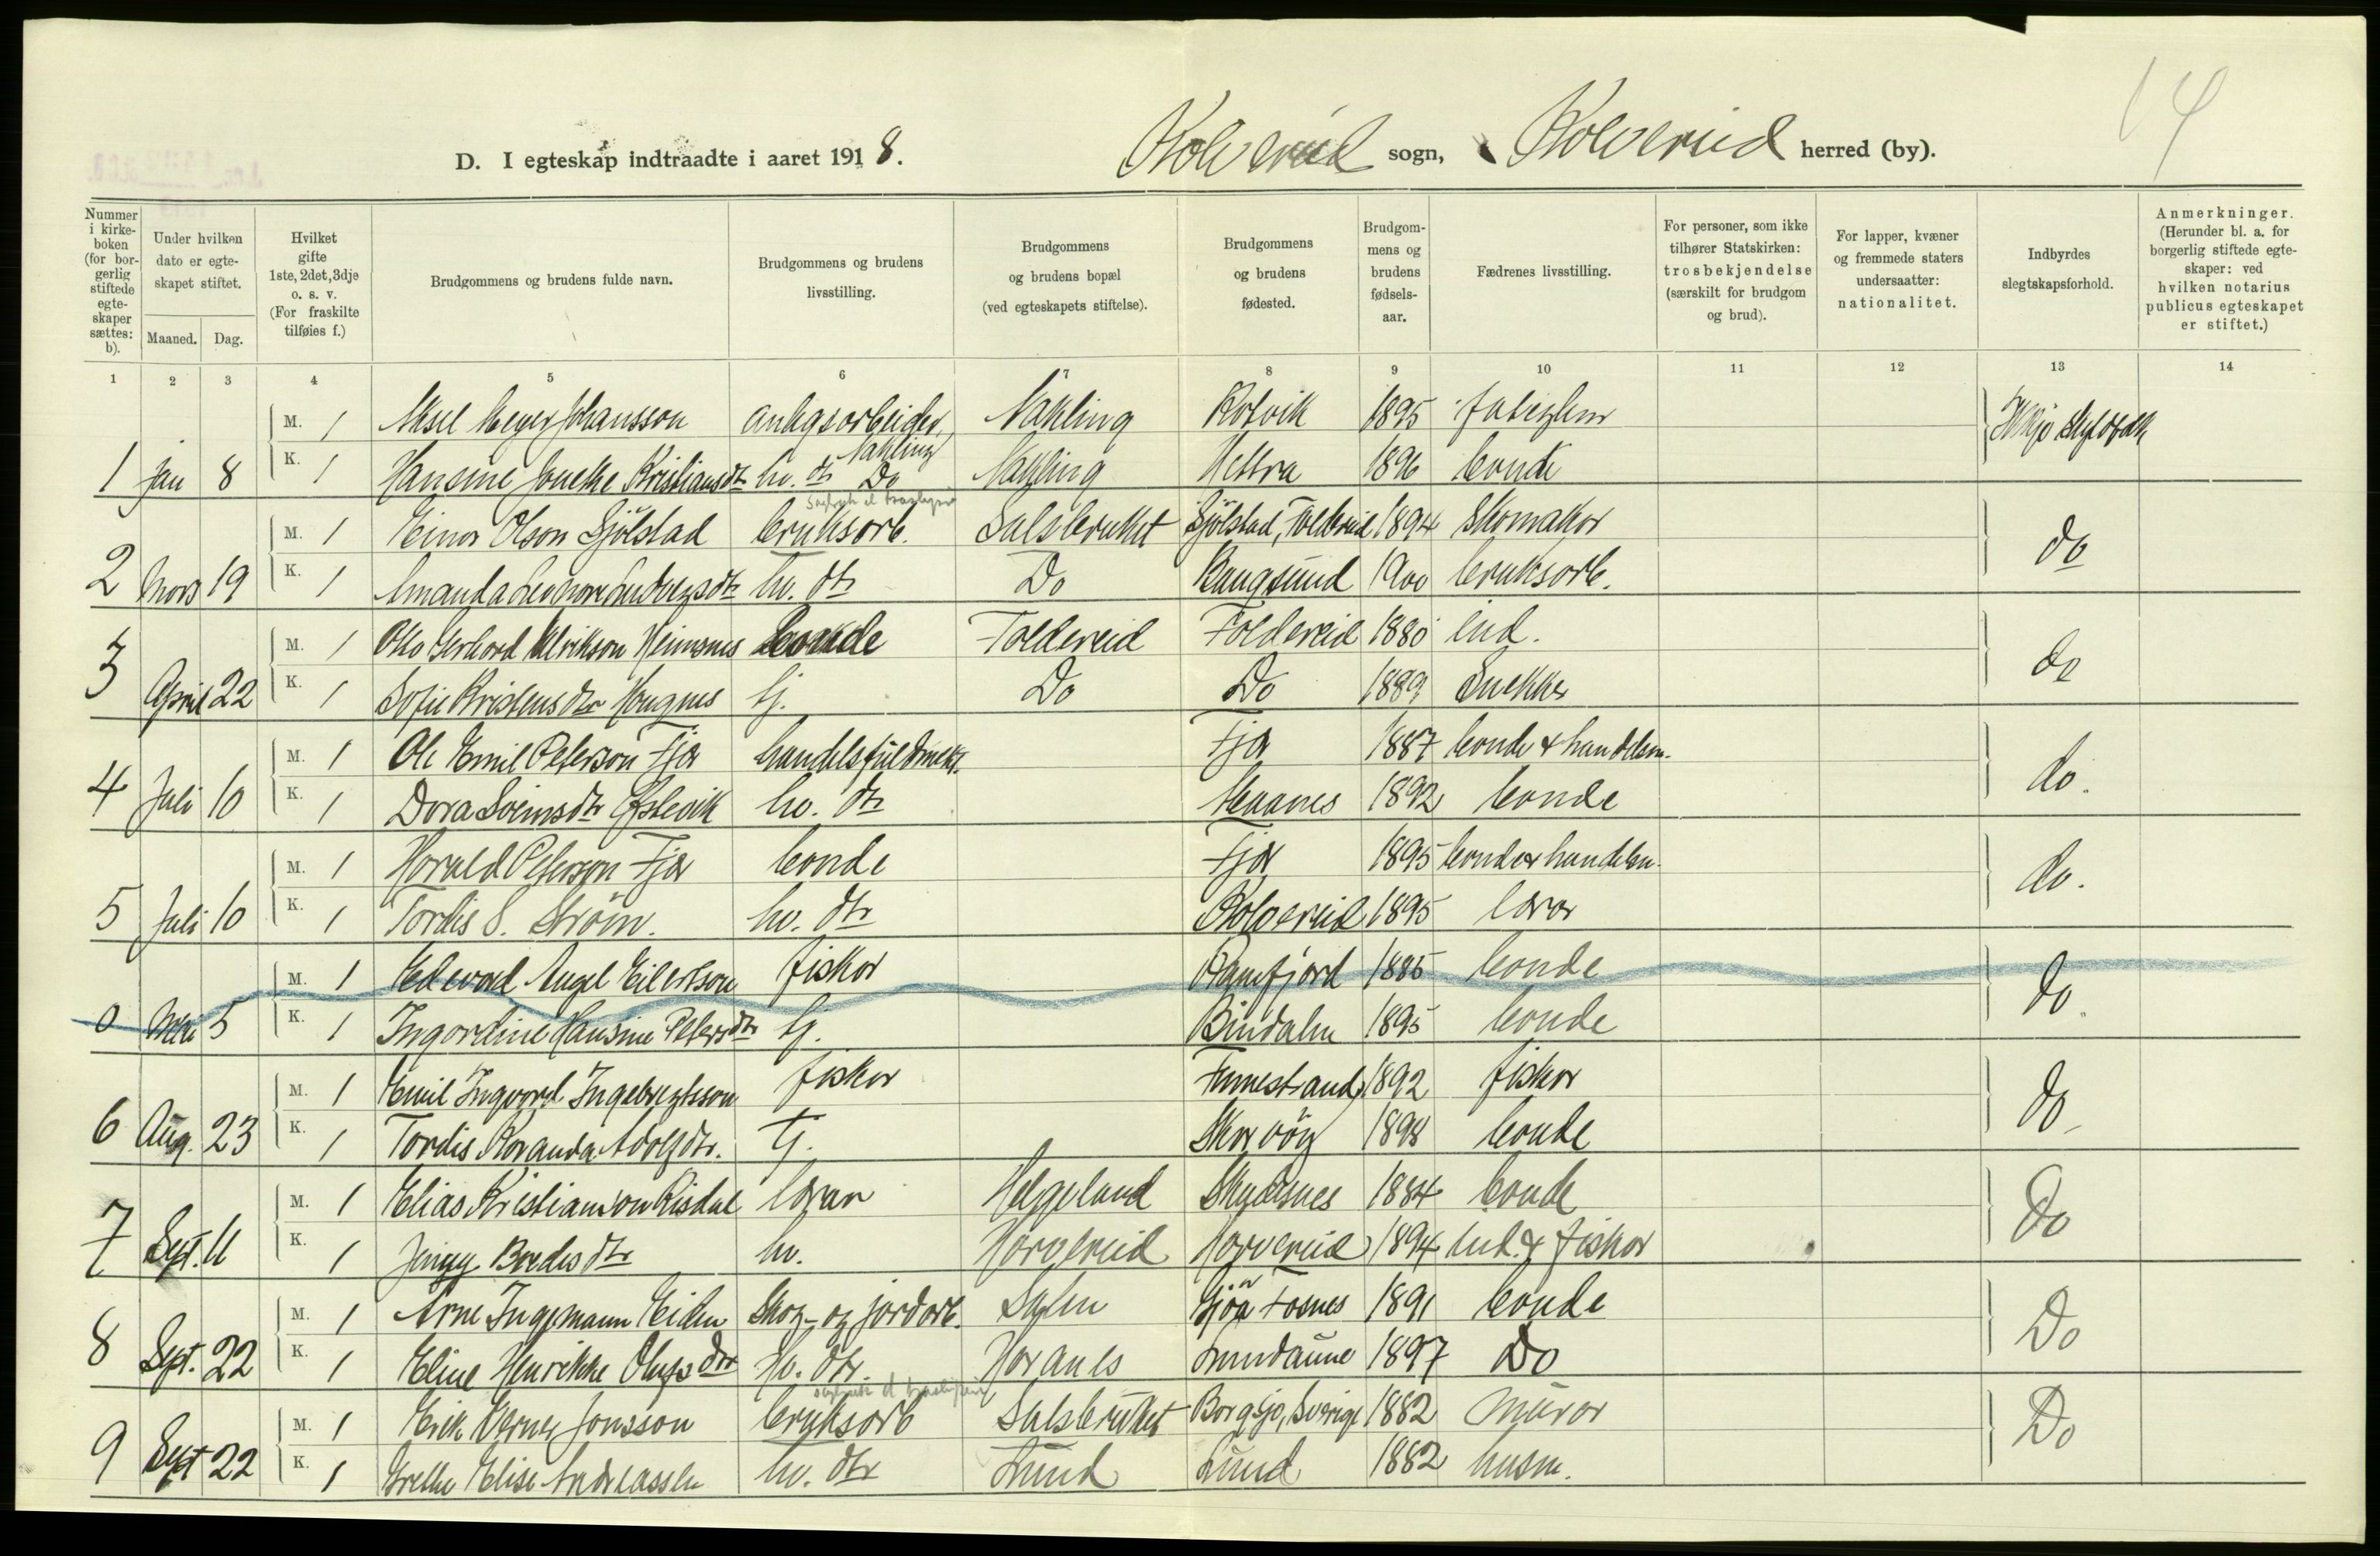 14
D. I egteskap indtraadte i aaret 1918. Kolvereid sogn, Kolvereid herred (by).
Nummer i kirkeboken (for borgerlig stiftede egteskaper sættes: b).
Under hvilken dato er egteskapet stiftet.
Maaned. Dag.
Hvilket gifte 1ste, 2det, 3dje o. s. v. (For fraskilte tilføies f.)
Brudgommens og brudens fulde navn.
Brudgommens og brudens livsstilling.
Brudgommens og brudens bopæl (ved egteskapets stiftelse).
Brudgommens og brudens fødested.
Brudgommens og brudens fødselsaar.
Fædrenes livsstilling.
For personer, som ikke tilhører Statskirken: trosbekjendelse (særskilt for brudgom og brud).
For lapper, kvæner og fremmede staters undersaatter: nationalitet.
Indbyrdes slegtskapsforhold.
Anmerkninger. (Herunder bl. a. for borgerlig stiftede egteskaper: ved hvilken notarius publicus egteskapet er stiftet.)
1 2 3 4 5 6 7 8 9 10 11 12 13 14
M. 1 Aksel Meyer Johansson anlegsarbeider, Nakling Rotvik 1895
Nakling
1 Jan 8 K. 1 Hansine Jonette Kristiansdtr hv. dtr Do Nakling 1896 bonde
M. 1 Einar Olson Sjölstad bruksarb. Salsbruket Sjölstad, Foldereid 1894 Skomaker do
2 Mars 19 K. 1 Amanda Ludvigsdtr hv. dtr Do Bangsund 1900 bruksarb.
M. 1 Otto Gerhard Ulrikson Heimsnes bonde Foldereid Foldereid 1880 ind. do
3 April 22 K. 1 Sofie Kristensdtr Haugnes tj. Do Do 1889 Snekker
M. 1 Ole Emil Peterson Fjær handelsfuldmekt. Fjær 1887 bonde & handelsm. do.
4 Juli 10 K. 1 Dora Sveinsdtr hv. dtr 1892 bonde
M. 1 Harald Peterson Fjær bonde Fjær 1895 bonde & handelsm. do.
5 Juli 10 K. 1 Tordis S. Ström. hv. dtr Kolvereid 1895 lærer
M. 1 Edevard Angel Eilertson fisker Ranfjord 1885 bonde do.
0 Mai 5 K. 1 Ingordine Hansine Petersdtr tj. Bindalen 1895 bonde
M. 1 Emil Ingvard Ingebrigtsson fisker Finnestrand 1892 fisker do
6 Aug. 23 K. 1 Tordis Adolfsdtr. tj. 1898 bonde
M. 1 Elias Kristianson Risdal lærer Helgeland Skudesnes 1884 bonde Do
7 Sept. 11 K. 1 Jenny Bredesdtr hv. Horvereid Horvereid 1894 ind. & fisker
M. 1 Arne Ingemann Eiden Skog- og jordarb. Salen Gjöa Fosnes 1891 bonde Do
8 Sept. 22 K. 1 Eline Henrikke Olufsdtr hv. dtr. Horanes Lundaune 1897 Do
M. 1 Erik Verner Jonsson bruksarb Salsbruket Borgsjö, Sverige 1882 murer Do
9 Sept 22 K. 1 Grethe Elise Andreassen hv. dtr Lund Lund 1882 husm.